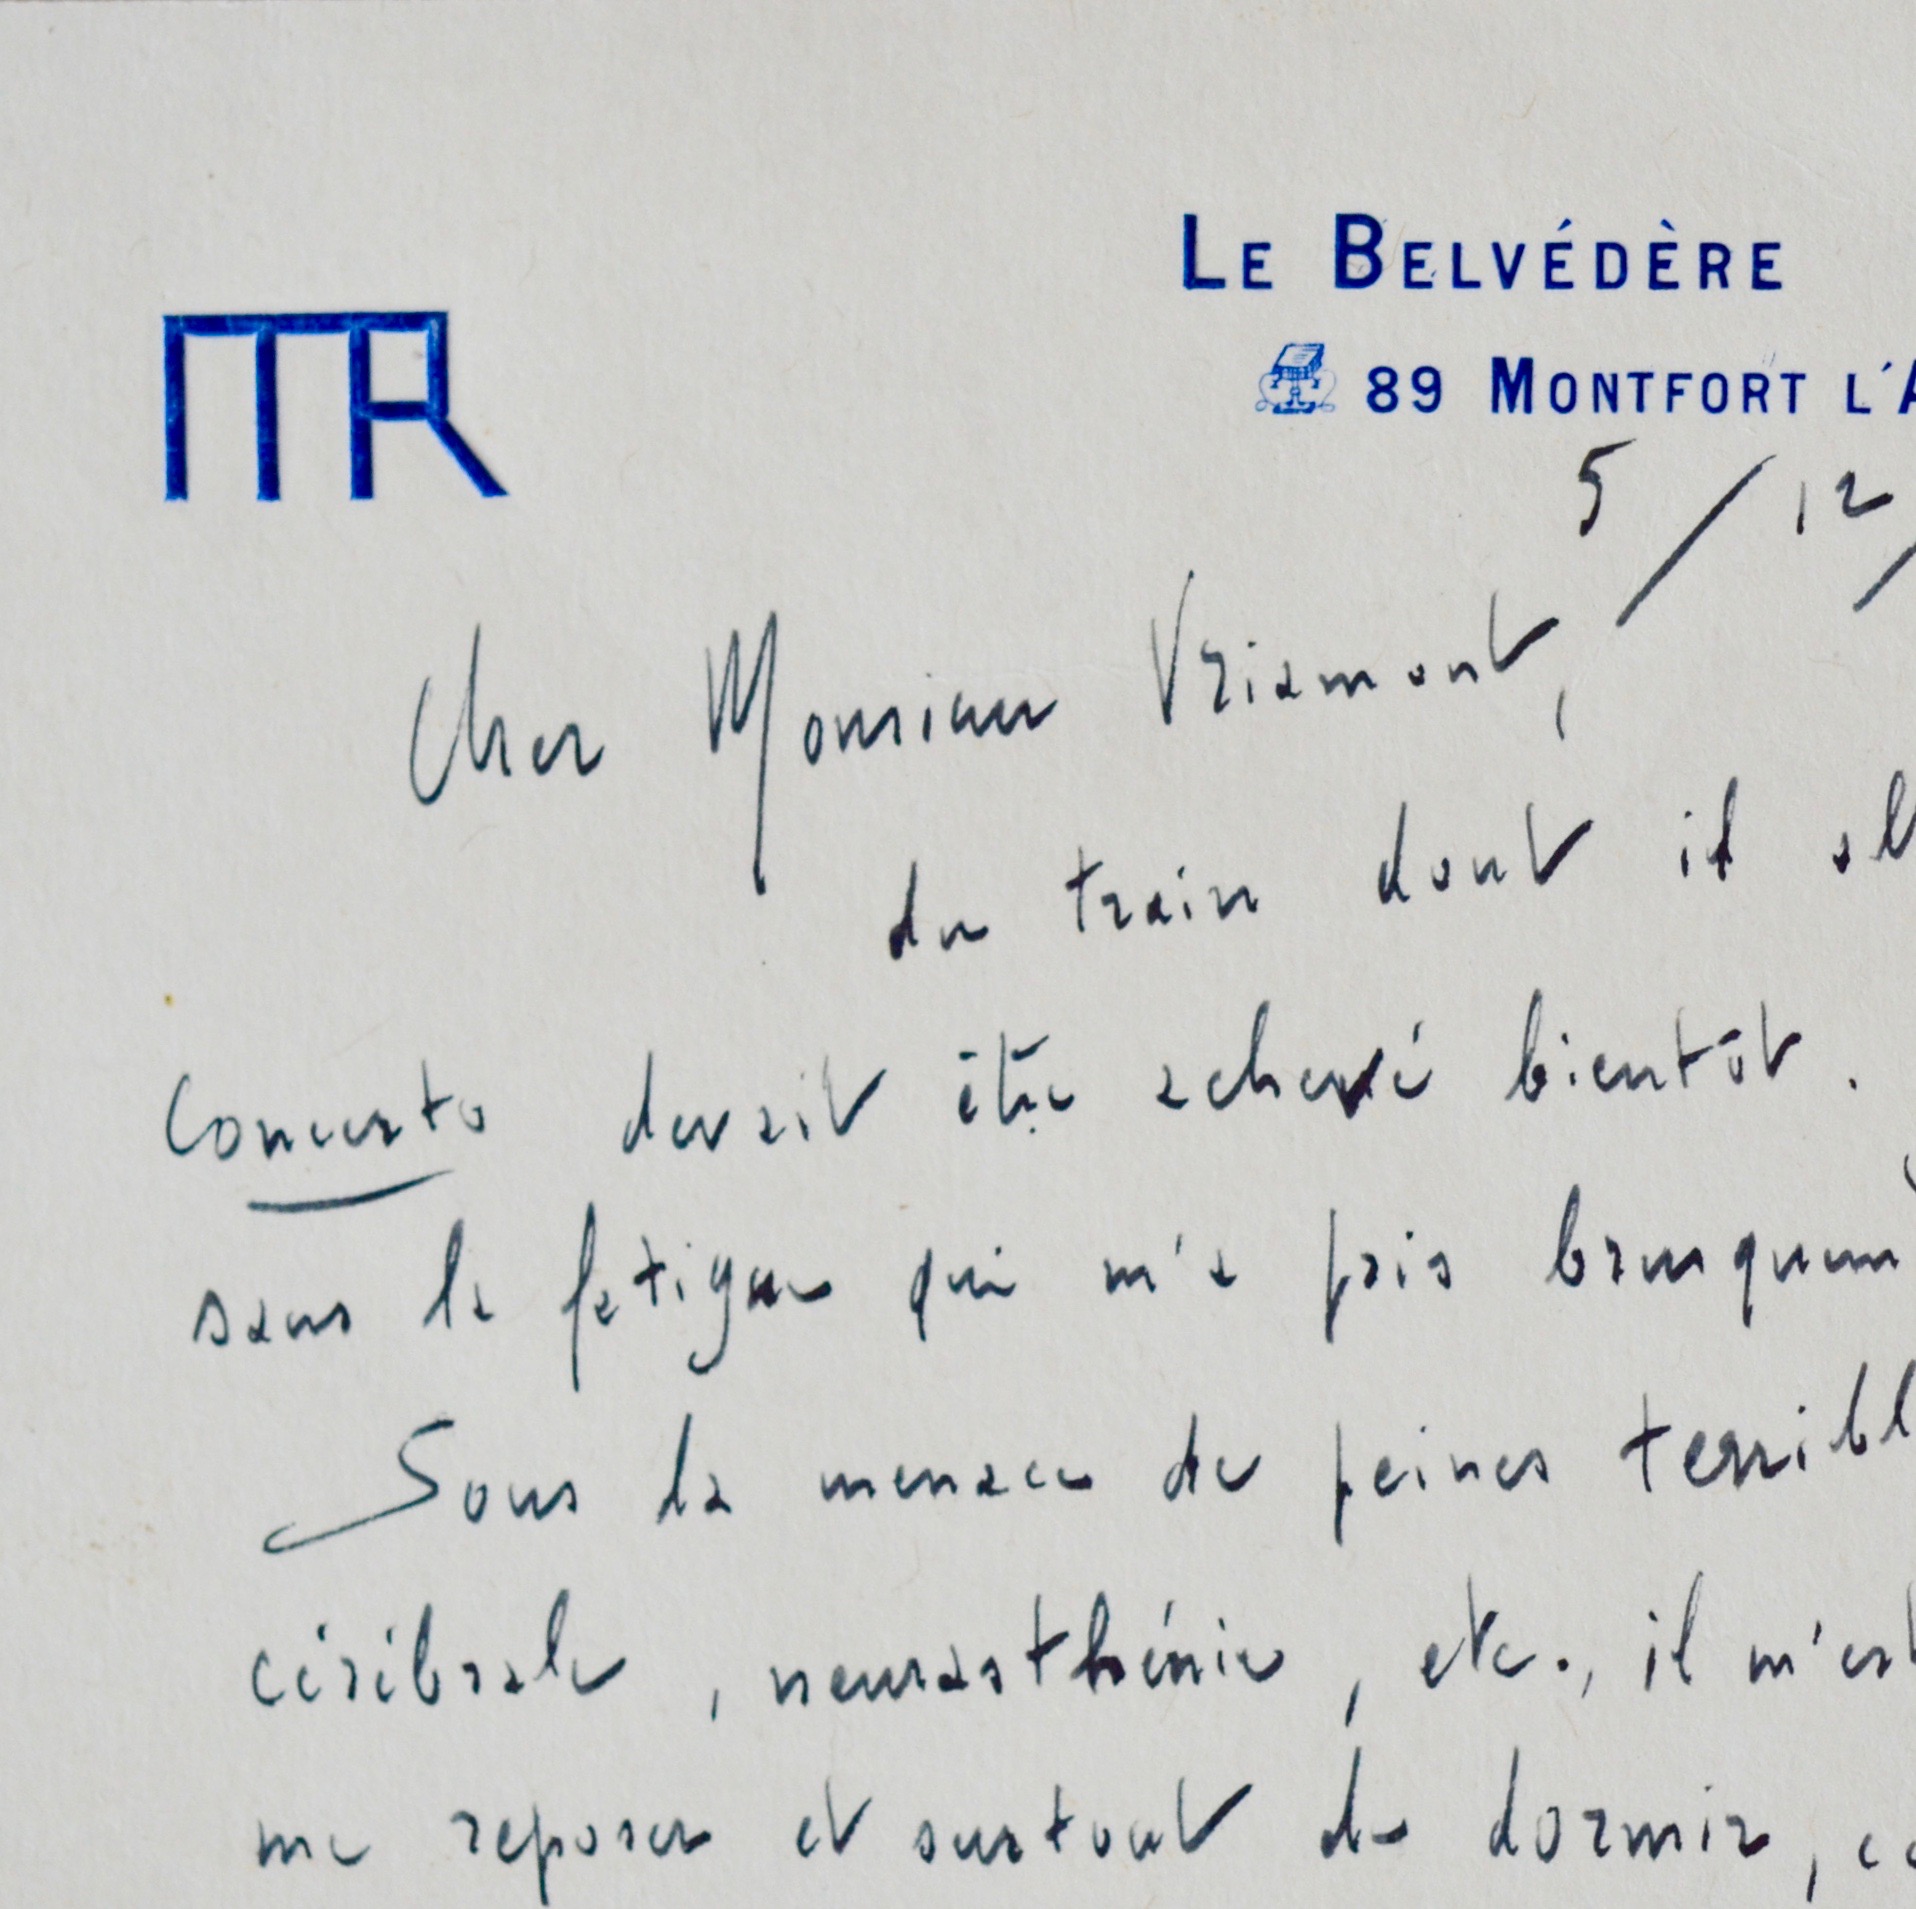 MR
LE BELVÉDÈRE
89 MONTFORT L'A
5/12/
Cher Monsieur Vriamont,
du train dont il all
Concerto devait être achevé bientôt.
sans la fatigue qui m'a pris brusquem
Sous la menace de peines terribl
cérébrale, neurasthénie, etc., il m'est
me reposer et surtout de dormir,